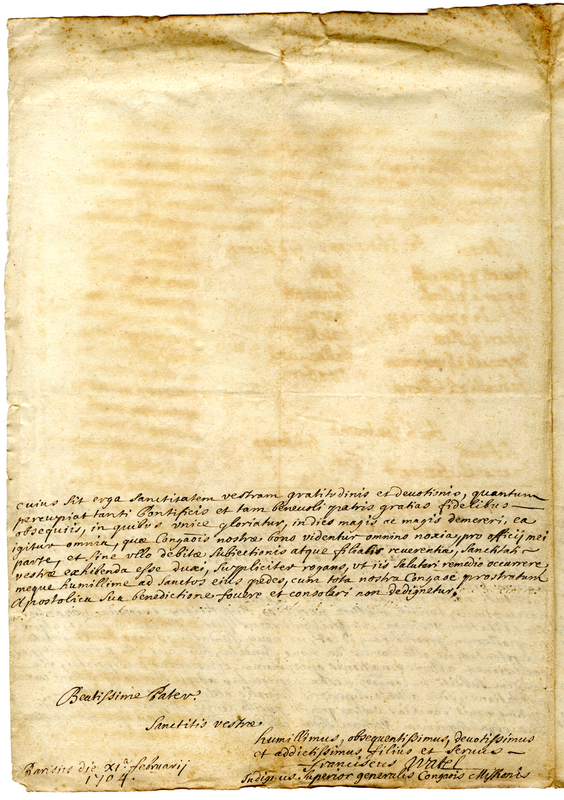 cuius sit erga Sanctitatem vestram gratitudinis et devotionis, quantum
percupiat tanti Pontificis et tam benevoli patris gratias fidelibus
obsequiis, in quibus vnice gloriatur, indies magis ac magis demereri, ea
igitur omnia, quæ Congaõis nostræ bono videntur omnino noxia, pro officij mei
parte, et sine vllo debitæ subiectionis atque filialis reuerentiæ, Sanctitati
vestræ exhibenda esse duxi, suppliciter rogans, vt iis salutari remedio occurrere
meque humillime ad Sanctos eius pedes, cum tota nostra Congaõe prostratum
Apostolica sua benedictione fouere et consolari non dedignetur.
Beatissime Pater.
Sanctitis vestræ
humillimus, obsequentissimus, deuotissimus
et addictissimus filius et seruus
Franciscus Watel
Indignus Superior generalis Congaõis Missionis
Parisiis die XIa. februarij
1704.